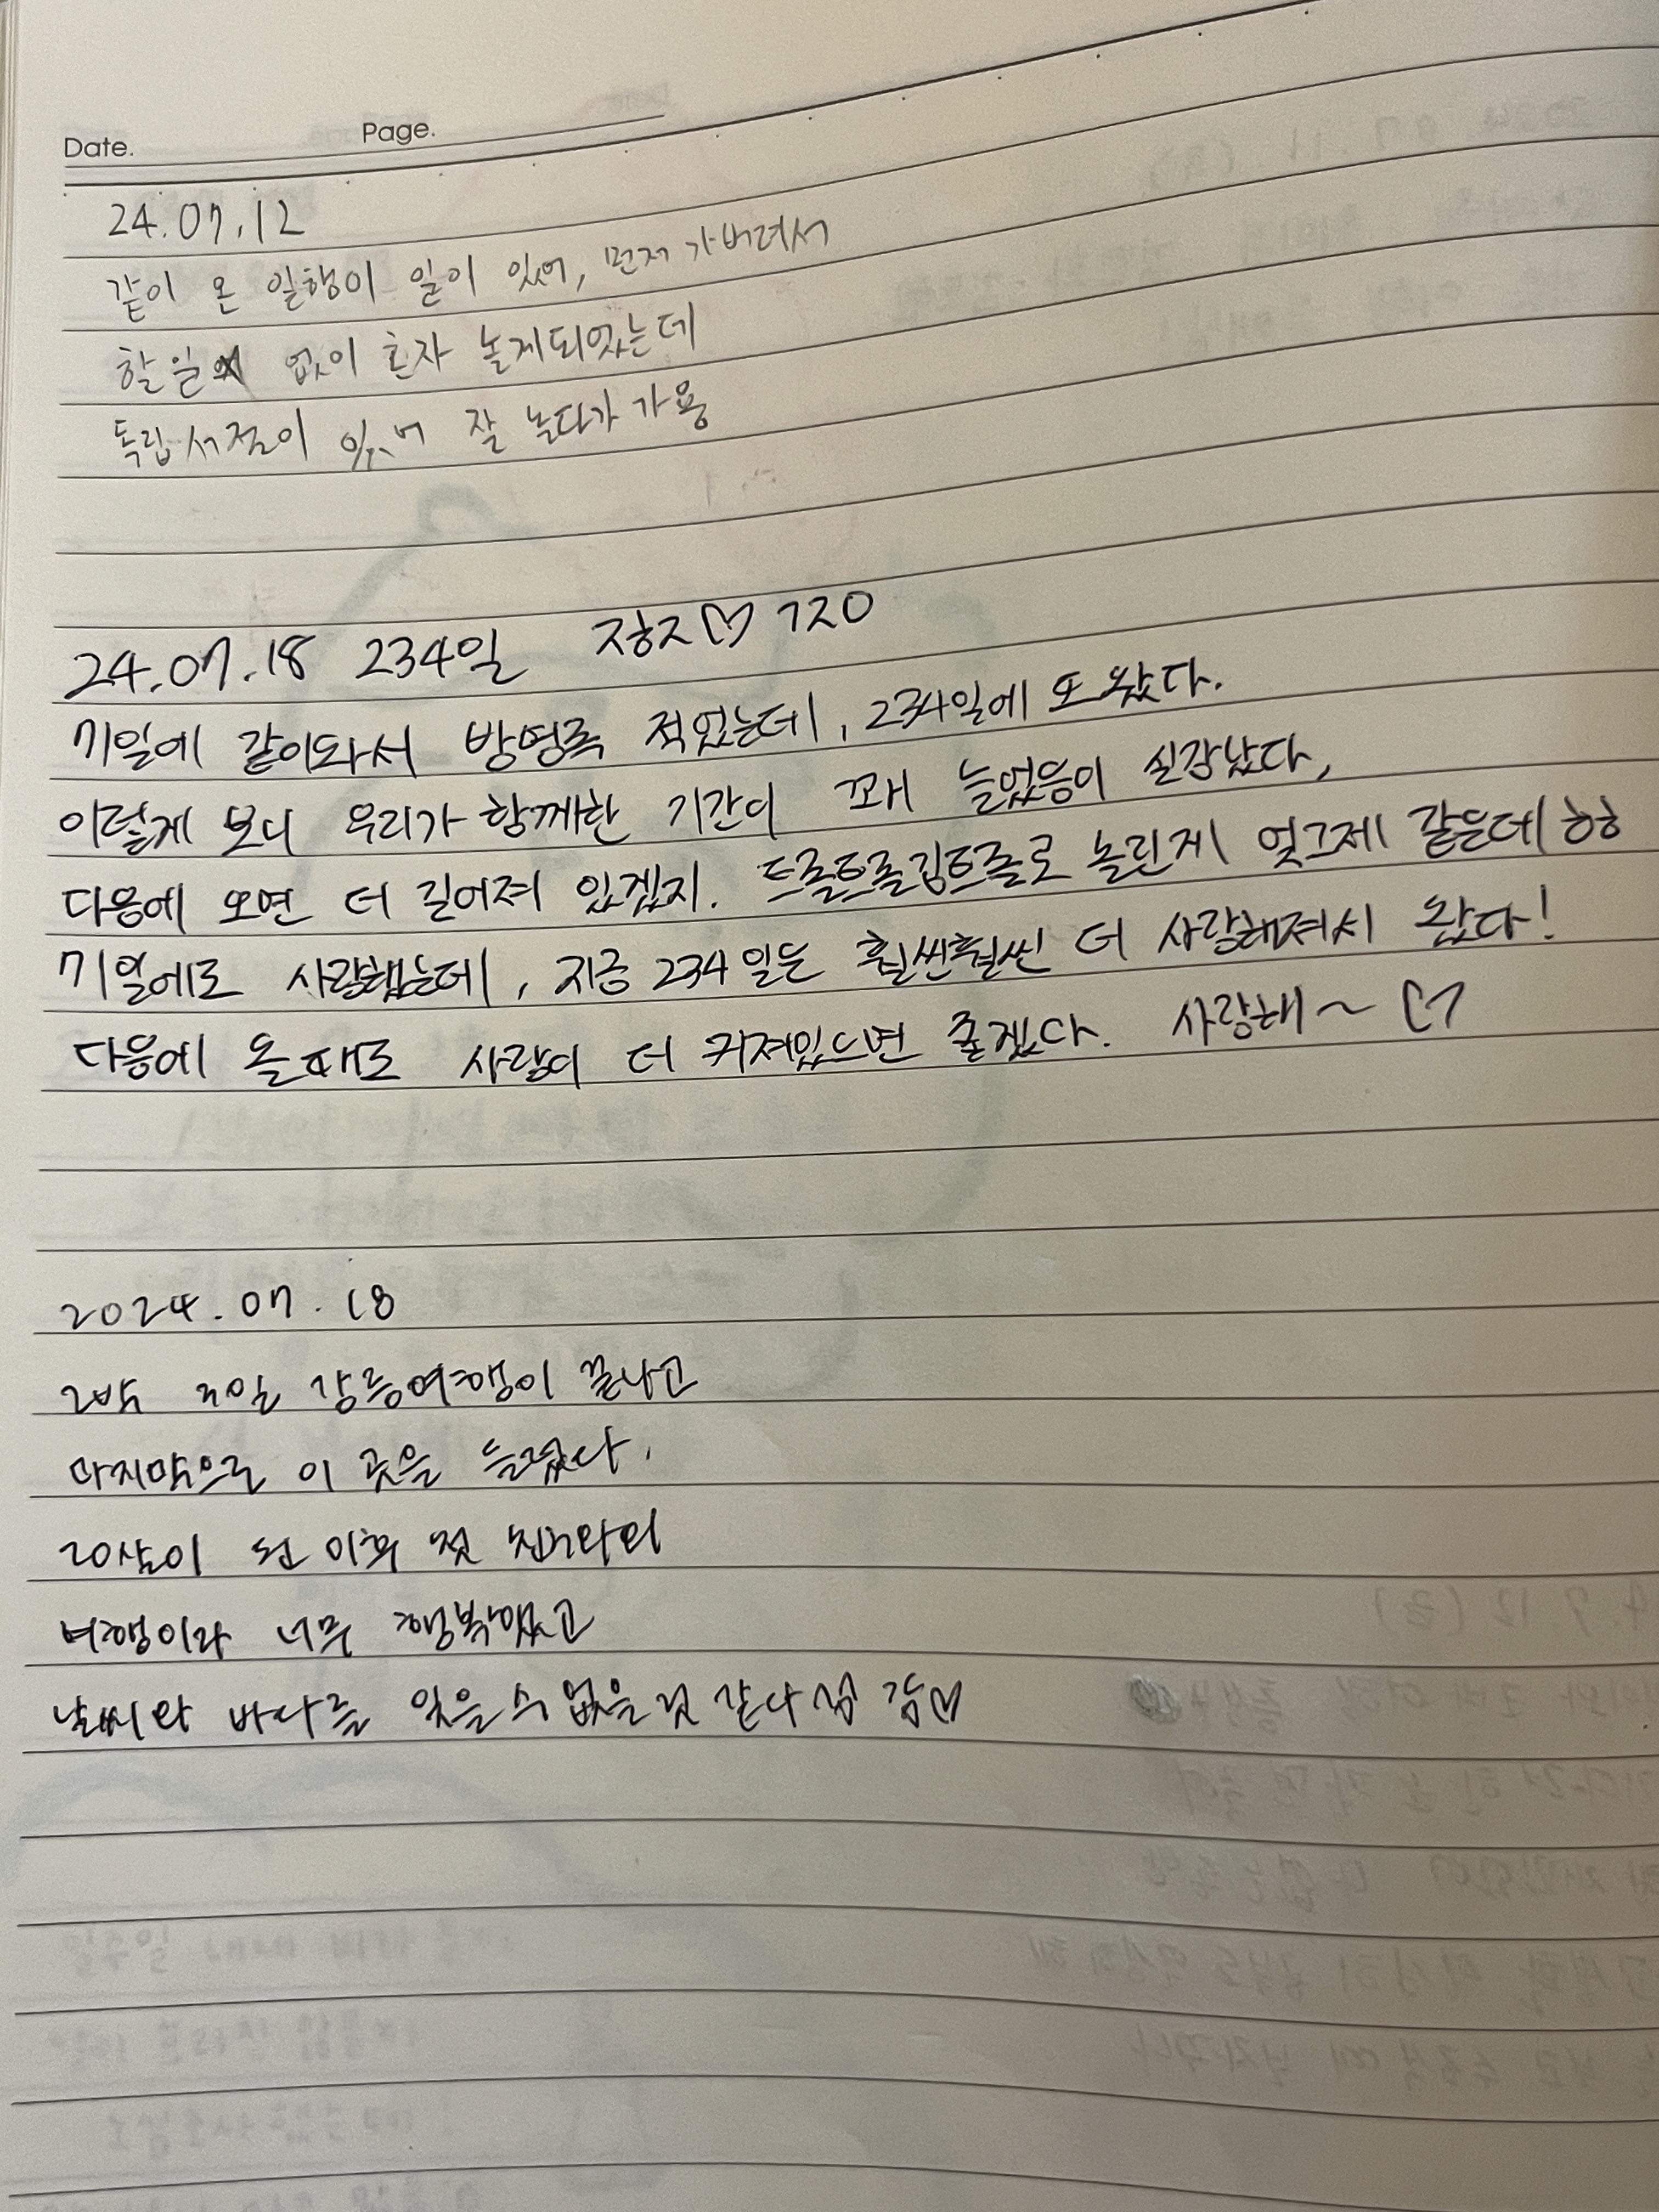 Date. Page.
24.07.12
같이 온 일행이 일이 있어, 먼저 가버려서
할일 없이 혼자 놀게되었는데
독립서점이 있어 잘 놀다가 가용
24.07.18 234일 ♡
71일에 같이와서 방명록 적었는데, 234일에 또 왔다.
이렇게 보니 우리가 함께한 기간이 꽤 늘었음이 실감났다,
다음에 오면 더 길어져 있겠지. 놀린게 엊그제 같은데 하하
71일에도 사랑했는데, 지금 234일은 훨씬훨씬 더 사랑해져서 왔다!
다음에 올때도 사랑이 더 커져있으면 좋겠다. 사랑해~ ♡
2024.07.18
2박 3일 강릉여행이 끝나고
마지막으로 이 곳을 들렸다.
20살이 된 이후 첫 친구와의
여행이라 너무 행복했고
날씨와 바다를 잊을 수 없을 것 같다 ♡